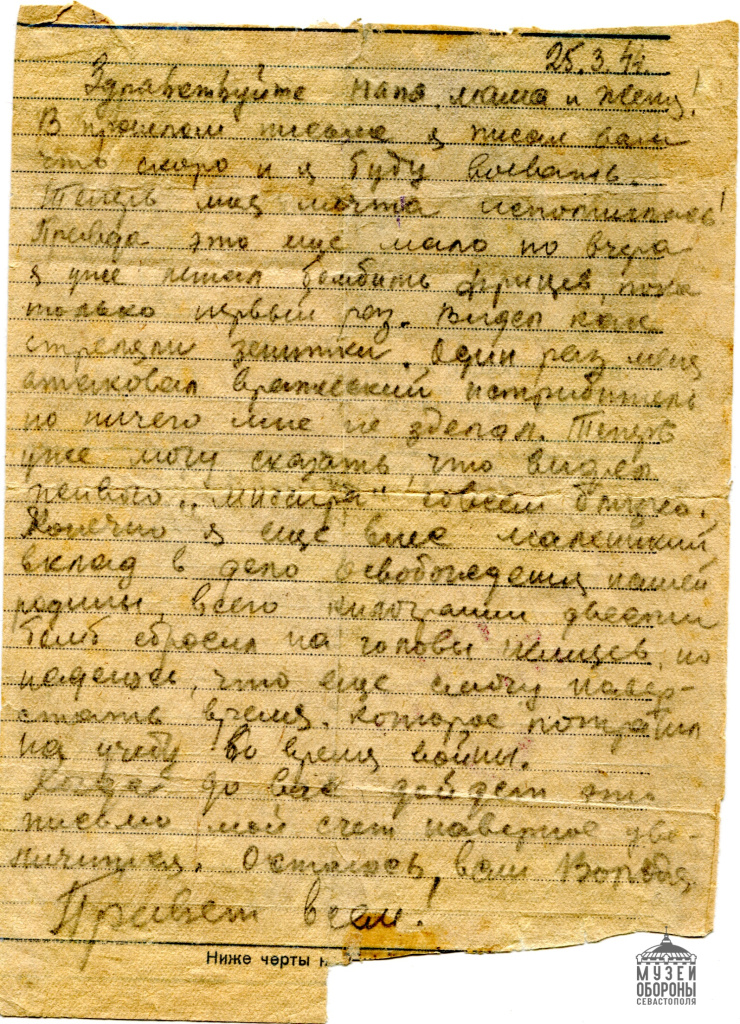 25.3.44.
Здравствуйте папа, мама и Женя!
В прошлом письме я писал вам
что скоро и я буду воевать.
Теперь моя мечта исполнилась!
Правда это еще мало но вчера
я уже летал бомбить фрицев, пока
только первый раз. Видел как
стреляли зенитки. Один раз меня
атаковал вражеский истребитель
но ничего мне не зделал. Теперь
уже могу сказать, что видел
живого „мисайра" совсем близко.
Конечно я еще внес маленький
вклад в дело освобождения нашей
родины, всего килограмм двести
бомб сбросил на головы немцев, но
надеюсь, что еще смогу навер-
стать время, которое потратил
на учебу во время войны.
Когда до вас дойдет это
письмо мой счет наверное уве-
личится. Остаюсь, ваш Володя
Привет всем!
Ниже черты
МУЗЕЙ
ОБОРОНЫ
СЕВАСТОПОЛЯ